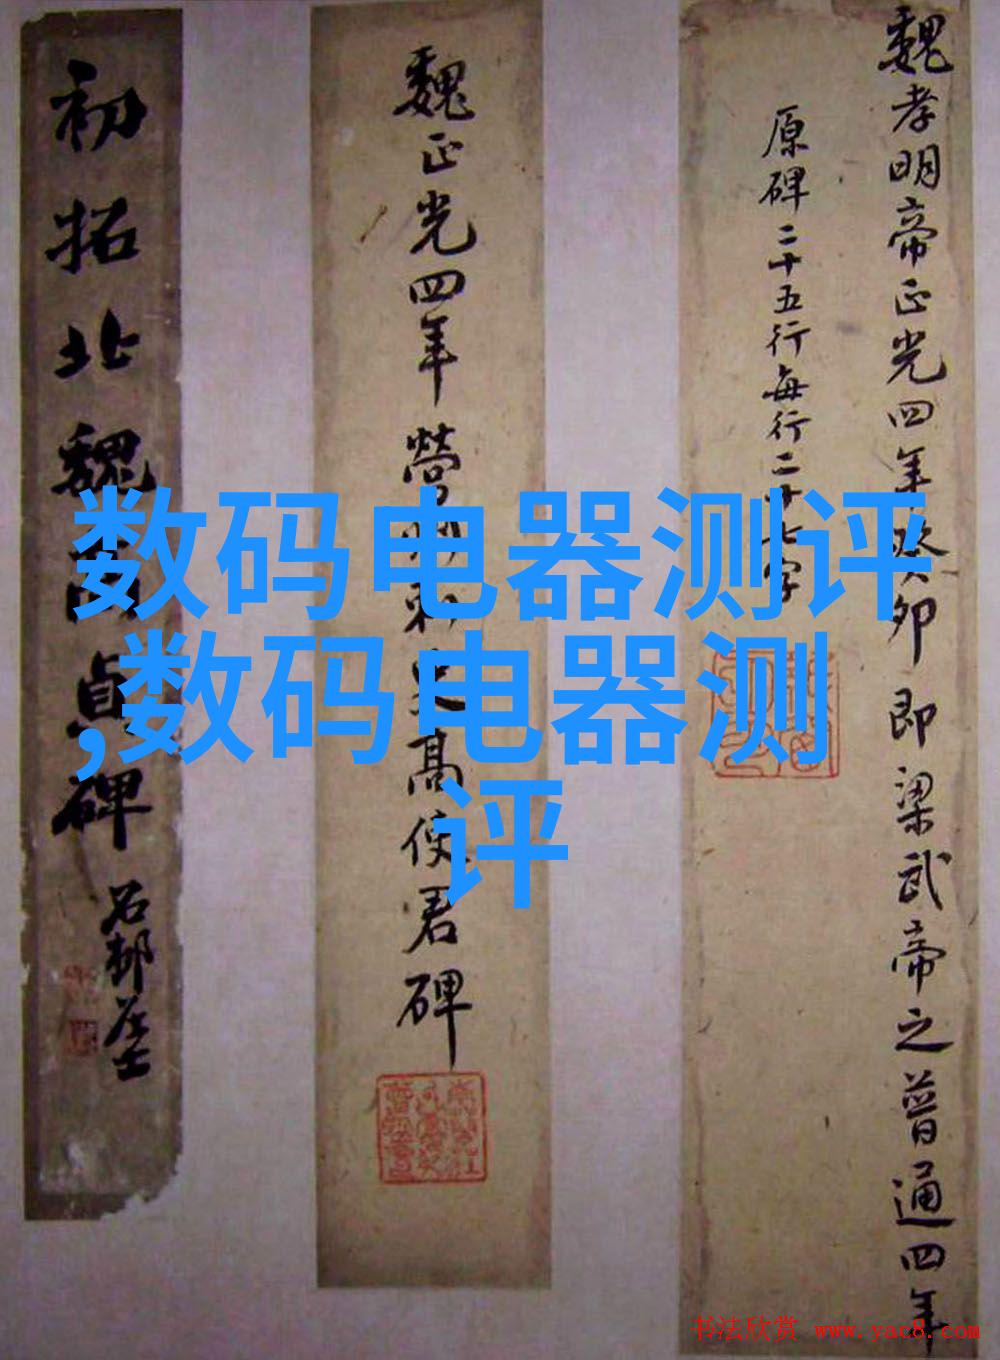 魏孝明帝正光四年癸卯即梁武帝之普通四年
原碑二十五行每行二十七字
魏正光四年營州刺史高使君碑
初拓北魏高貞碑
石邨居士
数码电器测评
,数码电器测
评
书法欣赏 www.yac8.com